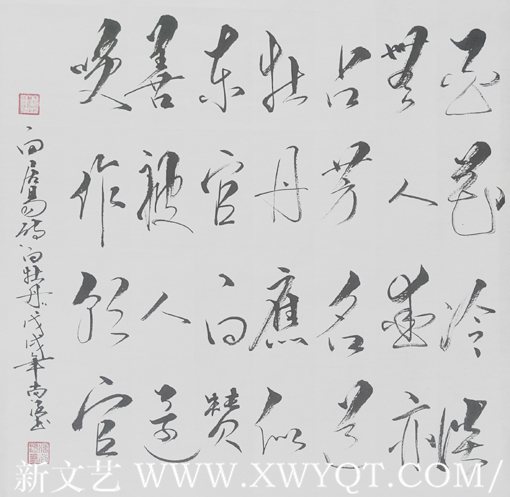 白花冷澹
無人愛亦
占芳名道
牡丹應似
东宫白赞
善被人還
唤作朝官
白居易诗白牡丹戊戌年尚
新文艺 WWW.XWYQT.COM/